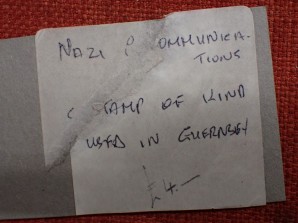 NAZI COMMUNICA-
TIONS
STAMP OF KIND
USED IN GUERNSEY
£4.—